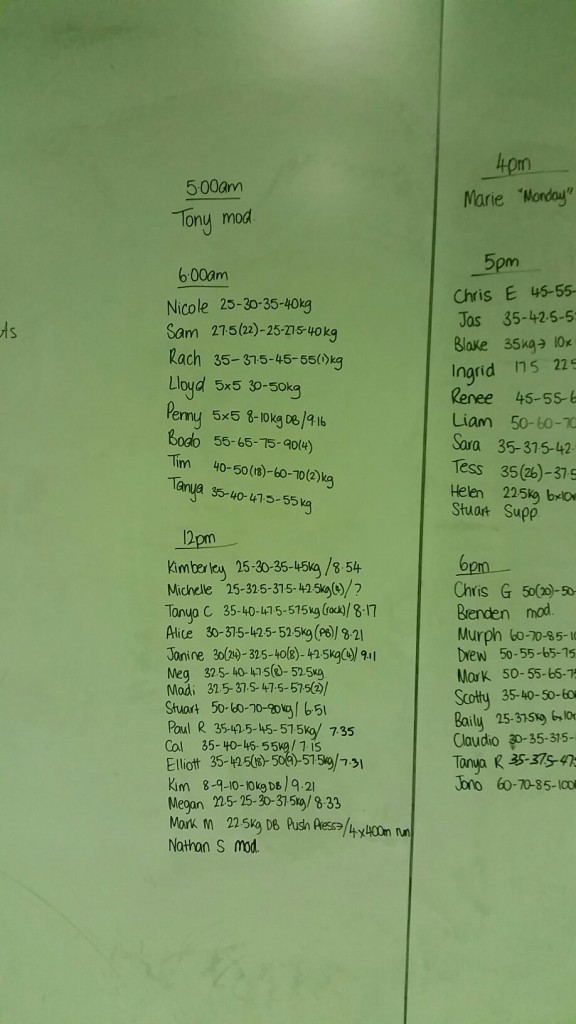 5.00am
Tony mod.
6.00am
Nicole 25-30-35-40kg
Sam 27.5(22)-25-27.5-40kg
Rach 35-37.5-45-55(1)kg
Lloyd 5x5 30-50kg
Penny 5x5 8-10kg DB/9.16
Bobb 55-65-75-90(4)
Tim 40-50(18)-60-70(2)kg
Tanya 35-40-47.5-55kg
12pm
Kimberley 25-30-35-45kg /8.54
Michelle 25-32.5-37.5-42.5kg(4)/?
Tanya C 35-40-47.5-57.5kg (rack)/8.17
Alice 30-37.5-42.5-52.5kg (PB)/8.21
Janine 30(24)-32.5-40(8)-42.5kg(4)/9.11
Meg 32.5-40-47.5(8)-52.5kg
Madi 32.5-37.5-47.5-57.5(2)/
Stuart 50-60-70-80kg/ 6.51
Paul R 35-42.5-45-57.5kg/ 7.35
Cal 35-40-45-55kg/ 7.15
Elliott 35-42.5(18)-50(9)-57.5kg/7.31
Kim 8-9-10-10kg DB/9.21
Megan 22.5-25-30-37.5kg/8.33
Mark M 22.5kg DB Push Press→/4x400m run
Nathan S mod.
4pm
Marie "Monday"
5pm
Chris E 45-55-
Jas 35-42.5-5
Blake 35kg→ 10x
Ingrid 17.5 22.5
Renee 45-55-6
Liam 50-60-70
Sara 35-37.5-42.
Tess 35(26)-37.5
Helen 22.5kg 6x10
Stuart Supp.
6pm
Chris G 50(20)-50-
Brenden mod.
Murph 60-70-85-10
Drew 50-55-65-75
Mark 50-55-65-7
Scotty 35-40-50-60
Baily 25-37.5kg 6x10
Claudio 30-35-37.5-
Tanya R 35-37.5-47.
Jono 60-70-85-100